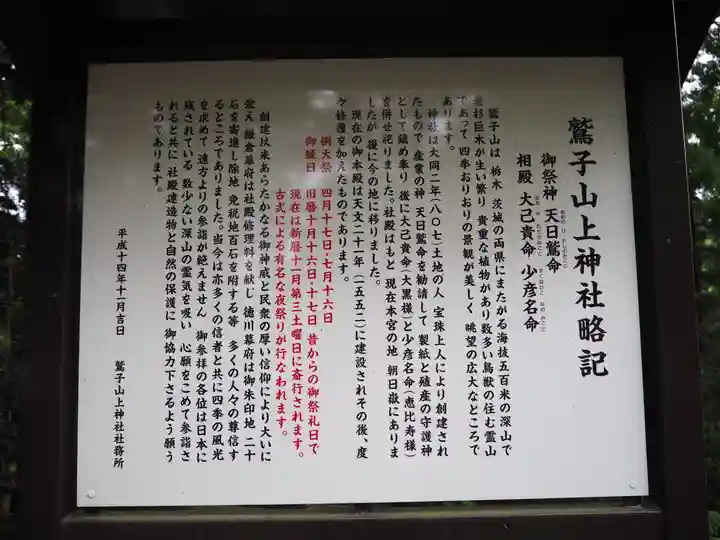 鷲子山上神社略記
御祭神 天日鷲命
相殿 大己貴命 少彦名命
鷲子山は 栃木 茨城の両県にまたがる海抜五百米の深山で
老杉巨木が生い繁り 貴重な植物があり数多い鳥獣の住む霊山
であって 四季おりおりの景観が美しく 眺望の広大なところで
あります。
神社は大同二年(八〇七)土地の人 宝珠上人により創建され
たもので 産業の神 天日鷲命を勧請して 製紙と殖産の守護神
として鎮め奉り 後に大己貴命(大黒様)と少彦名命(恵比寿様)
を併せ祀りました。社殿はもと 現在本宮の地 朝日嶽にありま
したが 後に今の地に移りました。
現在の御本殿は天文二十一年(一五五二)に建設されその後、度
々修覆を加えたものであります。
例大祭 四月十七日・七月十六日
御縁日 旧暦十月十六日・十七日 昔からの御祭礼日で
現在は新暦十一月第三土曜日に斎行されます。
古式による有名な夜祭りが行なわれます。
創建以来あらたかなる御神威と民衆の厚い信仰により大いに
栄え 鎌倉幕府は社殿修理料を献じ 徳川幕府は御朱印地 二十
石を寄進し除地 免税地百石を附する等 多くの人々の尊信す
るところでありました。当今は亦多くの信者と共に四季の風光
を求めて 遠方よりの参詣が絶えません 御参拝の各位は日本に
残されている 数少ない深山の霊気を吸い 心願をこめて参詣さ
れると共に 社殿建造物と自然の保護に 御協力下さるよう願う
ものであります。
平成十四年十一月吉日 鷲子山上神社社務所